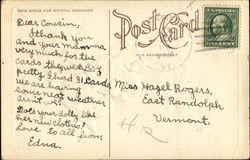 THIS SPACE FOR WRITING MESSAGES
Post Card
Dear Cousin,
I thank you
and your Mamma
very much for the
cards they were very
pretty I had 31 cards
we are having
some nice weather
ain't we.
Does your dolly like
her new clothes?
Love to all from
Edna.
Miss Hazel Rogers,
East Randolph,
Vermont.
H R